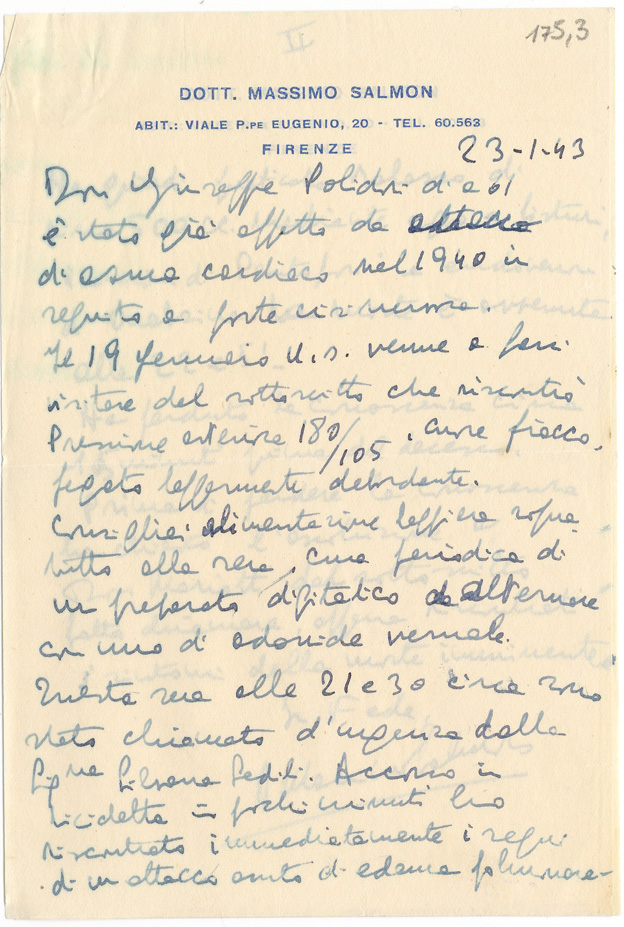 II
175,3
DOTT. MASSIMO SALMON
ABIT.: VIALE P.PE EUGENIO, 20 - TEL. 60.563
FIRENZE
23-1-43
Don Giuseppe Polidori di a 61
è stato già affetto da attacco
di asma cardiaco nel 1940 in
seguito a forte
Il 19 gennaio u.s. venne a farsi
visitare dal sottoscritto che riscontrò
Pressione arteriosa 180/105, cuore fiacco,
fegato leggermente debordante.
Consigliai alimentazione leggera sopra
tutto alla sera, cura periodica di
un preparato digitalico da alternare
con uno di adonide vernale.
Questa sera alle 21 e 30 circa sono
stato chiamato d'urgenza dalla
Sig.na Silvana Accorso in
bicicletta in pochi minuti ho
riscontrato immediatamente i segni
di un attacco acuto di edema polmonare-